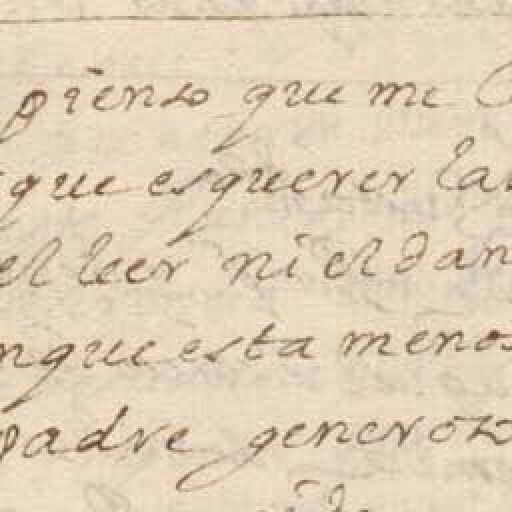 pienso que me
que es querer la
el leer ni el dan
nque esta menos
padre generozo